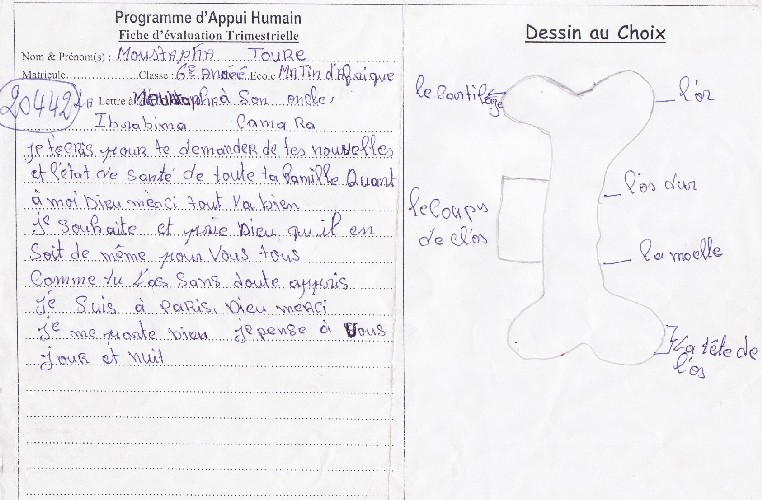 Programme d'Appui Humain
Fiche d'évaluation Trimestrielle
Nom & Prénom(s) : MOUSTAPHA TOURE
Matricule Classe : 6e Année Ecole MATin d'Afrique
20442 Lettre à Son oncle,
Ibrahima Camara
je t'ecris pour te demander de tes nouvelles
et l'état de santé de toute ta famille Quant
à moi Dieu merci tout va bien
je souhaite et prie Dieu qu'il en
soit de même pour vous tous
Comme tu l'as sans doute appris
je suis à PARIS, Dieu merci
je me porte bien je pense à vous
jour et nuit
Dessin au Choix
le cartilage
l'or
l'os dur
le coups
de l'os
la moelle
La tête de
l'os